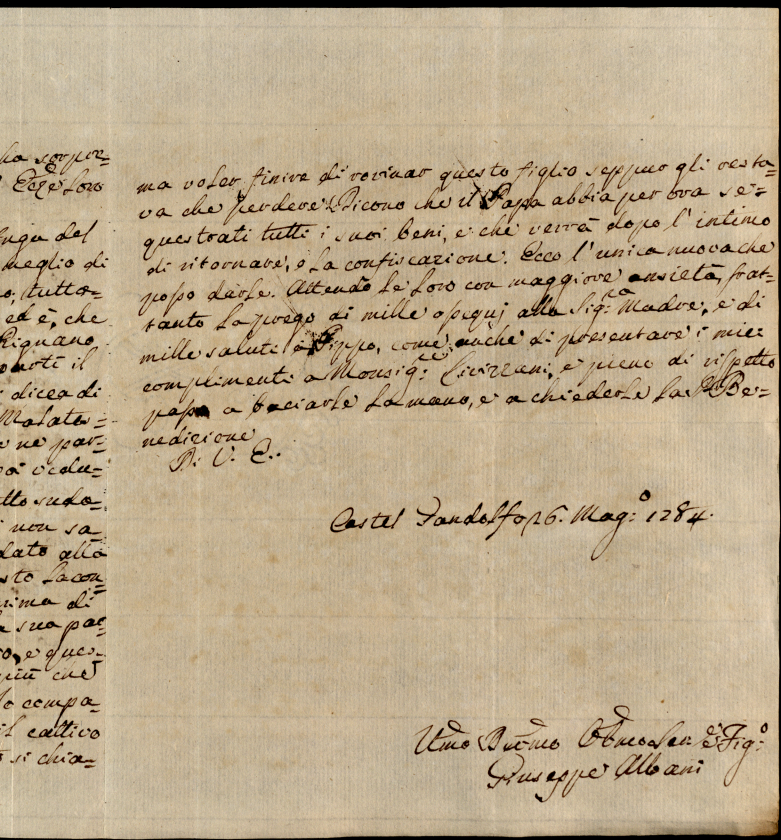 ha sorpre=
Ecc͠e Loro
fuga del
meglio di
o, tutto=
ed è, che
Rignano
il
dicea di
Malata=
e ne par=
vedu=
sudo=
non sa=
dato alla
sto la con=
prima di
sua pa=
o, e ques=
che
lo compa=
il cattivo
si chia=
ma voler finire di rovinar questo figlio seppur gli resta=
va che perdere. Dicono che il Papa abbia per ora se=
questrati tutti i suoi beni, e che verrà dopo l'intimo
di ritornare, a la confiscazione. Ecco l'unica nuova che
posso darle. Attendo le Loro con maggiore ansietà, frat=
tanto la prego di mille ossequj alla Sig:ra Madre, e di
mille saluti a Pippo, come anche di presentare i miei
complimenti a Monsig:re Civizzani, e pieno di rispetto
passo a baciarle la mano, e a chiederle la S. Be=
nedizione
D: V. E..
Castel Gandolfo 26. Mag:o 1784.
Umo Dmo Obmo Ser e Fig:o
Giuseppe Albani